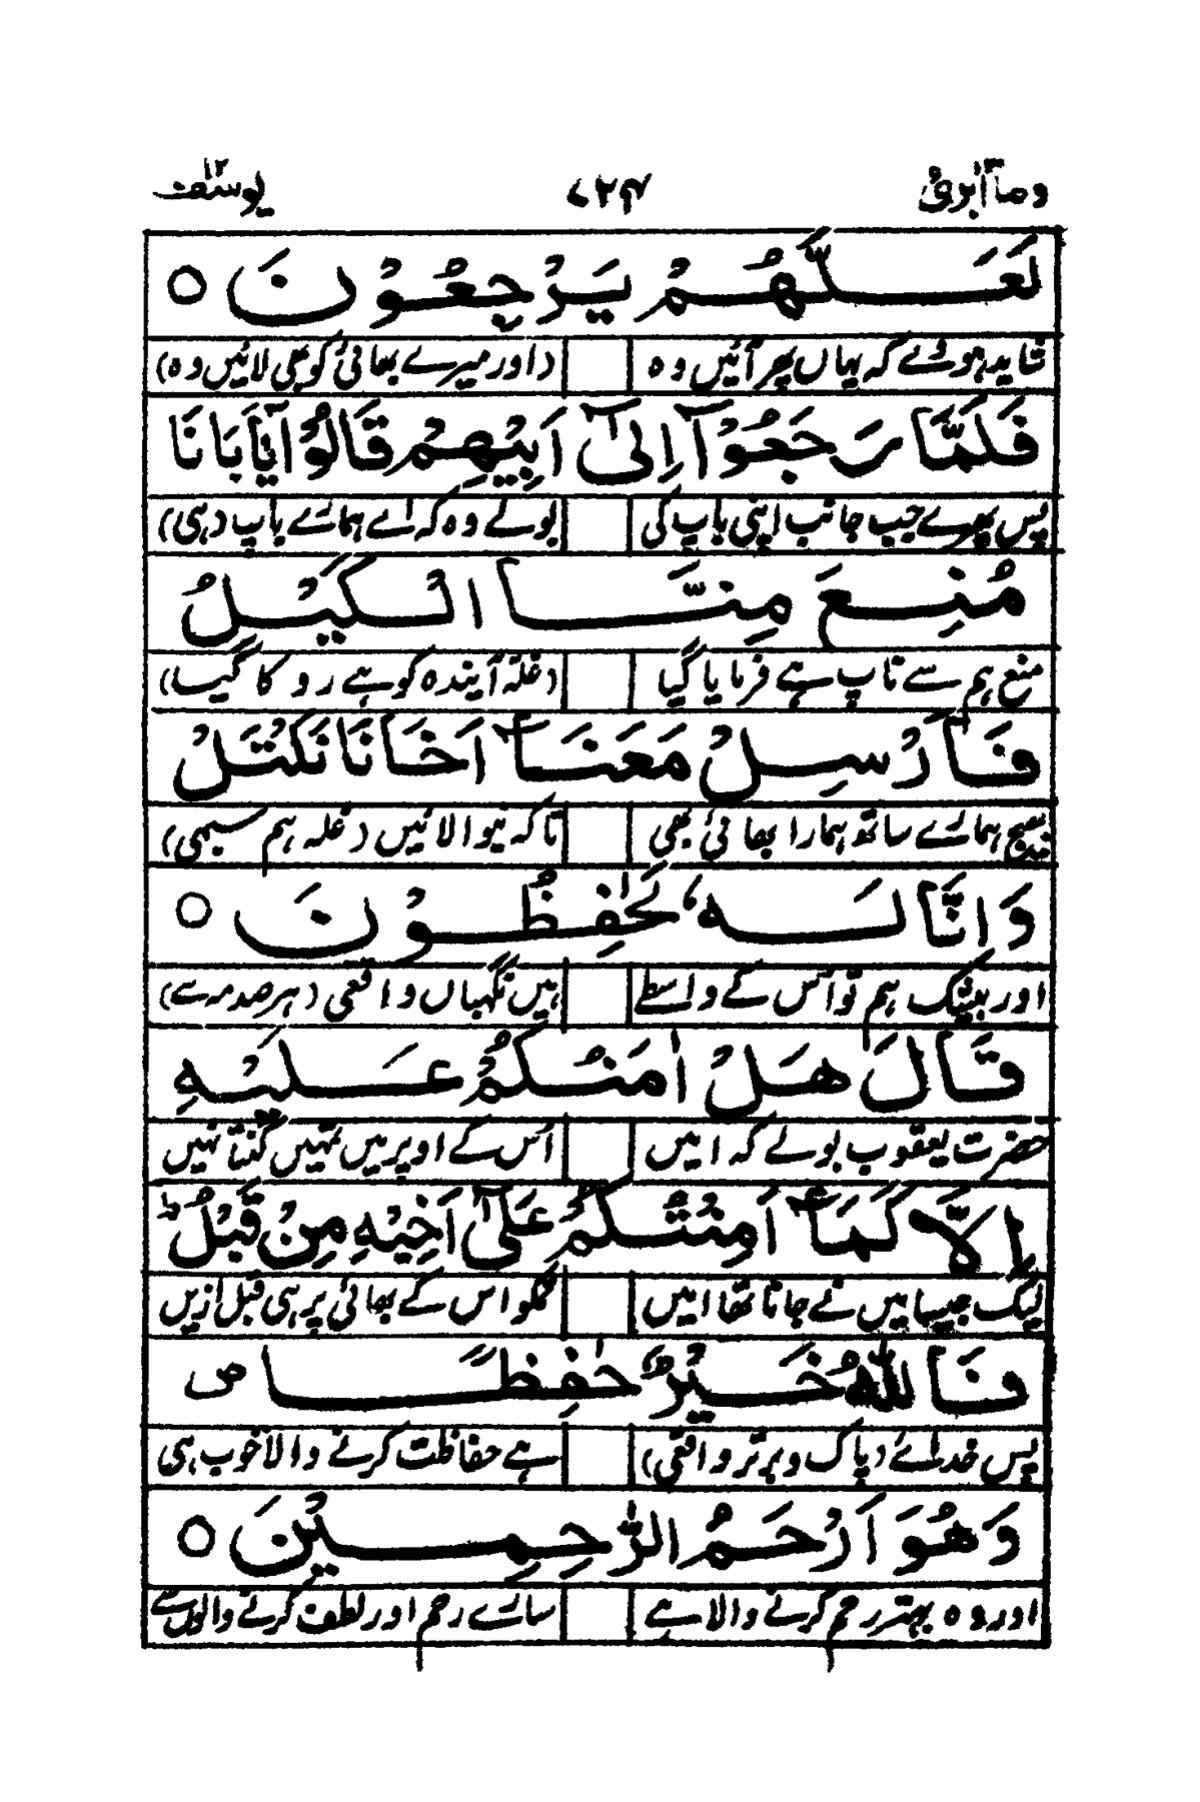 وماۤ ابرئ ۱۳ ۷۲۴ یوسف ۱۲
لَعَلَّهُمْ يَرْجِعُوْنَ ○
شاید ہوئے کہ یہاں پھر آئیں وہ (اور میرے بھائی کو بھی لائیں وہ)
فَلَمَّا رَجَعُوْۤا اِلٰۤى اَبِيْهِمْ قَالُوْا يٰۤاَبَانَا
پس پھرے جب جانب اپنی باپ کی بولے وہ کہ اے ہمارے باپ (ہی)
مُنِعَ مِنَّا الْكَيْلُ
منع ہم سے ناپ ہے فرمایا گیا (غلہ آیندہ کو ہے روکا گیا)
فَاَرْسِلْ مَعَنَاۤ اَخَانَا نَكْتَلْ
بھیج ہمارے ساتھ ہمارا بھائی بھی تاکہ نپوا لائیں (غلہ ہم سبھی)
وَاِنَّا لَهٗ لَحٰفِظُوْنَ ○
اور بیشک ہم تو اُس کے واسطے ہیں نگہباں واقعی (ہر صدمہ سے)
قَالَ هَلْ اٰمَنُكُمْ عَلَيْهِ
حضرت یعقوب بولے کہ امیں اُس کے اوپر میں تمہیں گنتا نہیں
اِلَّا كَمَاۤ اَمِنْتُكُمْ عَلٰۤى اَخِيْهِ مِنْ قَبْلُ ؕ
لیک جیسا میں نے جانا تھا امیں تمکو اس کے بھائی پر ہی قبل ازیں
فَاللّٰهُ خَيْرٌ حٰفِظًا ص
پس خدائے (پاک و برتر واقعی) ہے حفاظت کرنے والا خوب ہی
وَهُوَ اَرْحَمُ الرّٰحِمِيْنَ ○
اور وہ بہتر رحم کرنے والا ہے سارے رحم اور لطف کرنے والوں سے